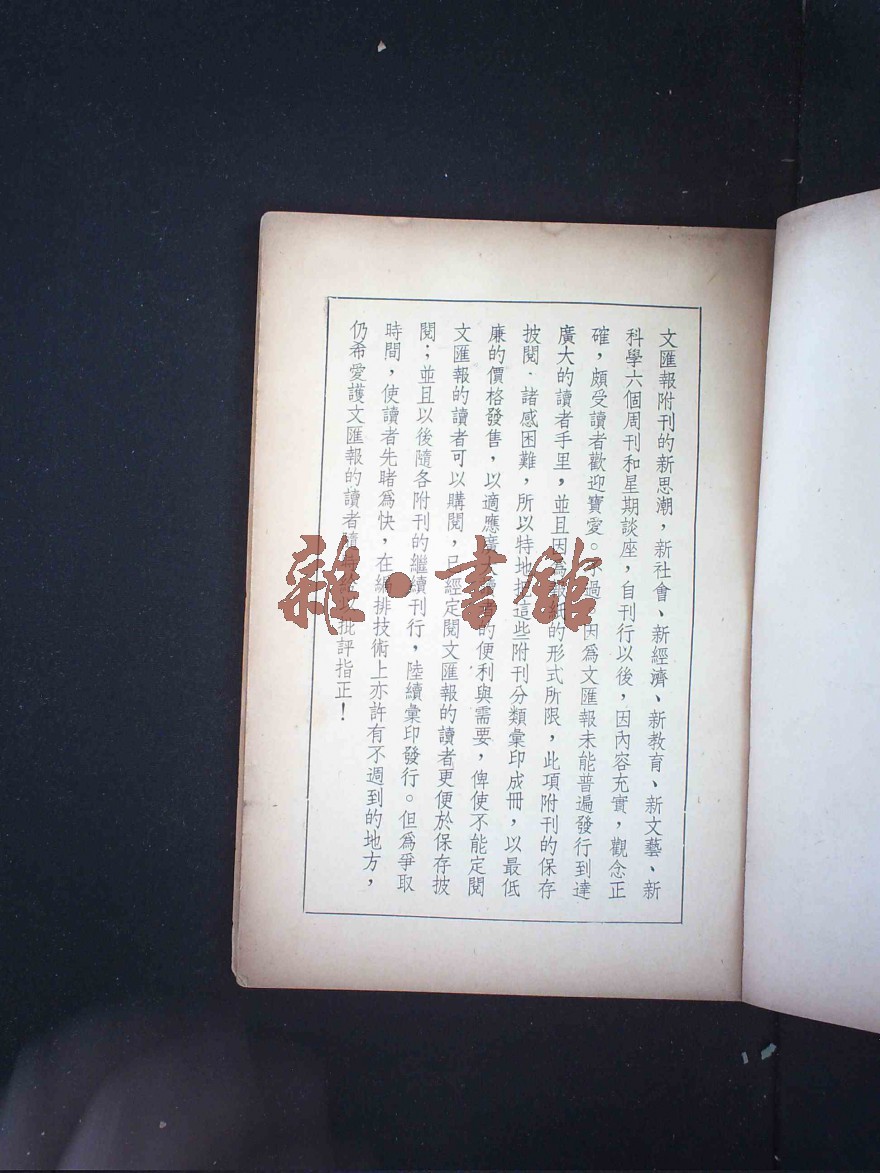 文匯報附刊的新思潮，新社會、新經濟、新教育、新文藝、新
科學六個周刊和星期談座，自刊行以後，因內容充實，觀念正
確，頗受讀者歡迎寶愛。過因爲文匯報未能普遍發行到達
廣大的讀者手里，並且因紙的形式所限，此項附刊的保存
披閱．諸感困難，所以特地把這些附刊分類彙印成冊，以最低
廉的價格發售，以適應廣大的便利與需要，俾使不能定閱
文匯報的讀者可以購閱，已經定閱文匯報的讀者更便於保存披
閱；並且以後隨各附刊的繼續刊行，陸續彙印發行。但爲爭取
時間，使讀者先睹爲快，在編排技術上亦許有不週到的地方，
仍希愛護文匯報的讀者批評指正！
雜·書館